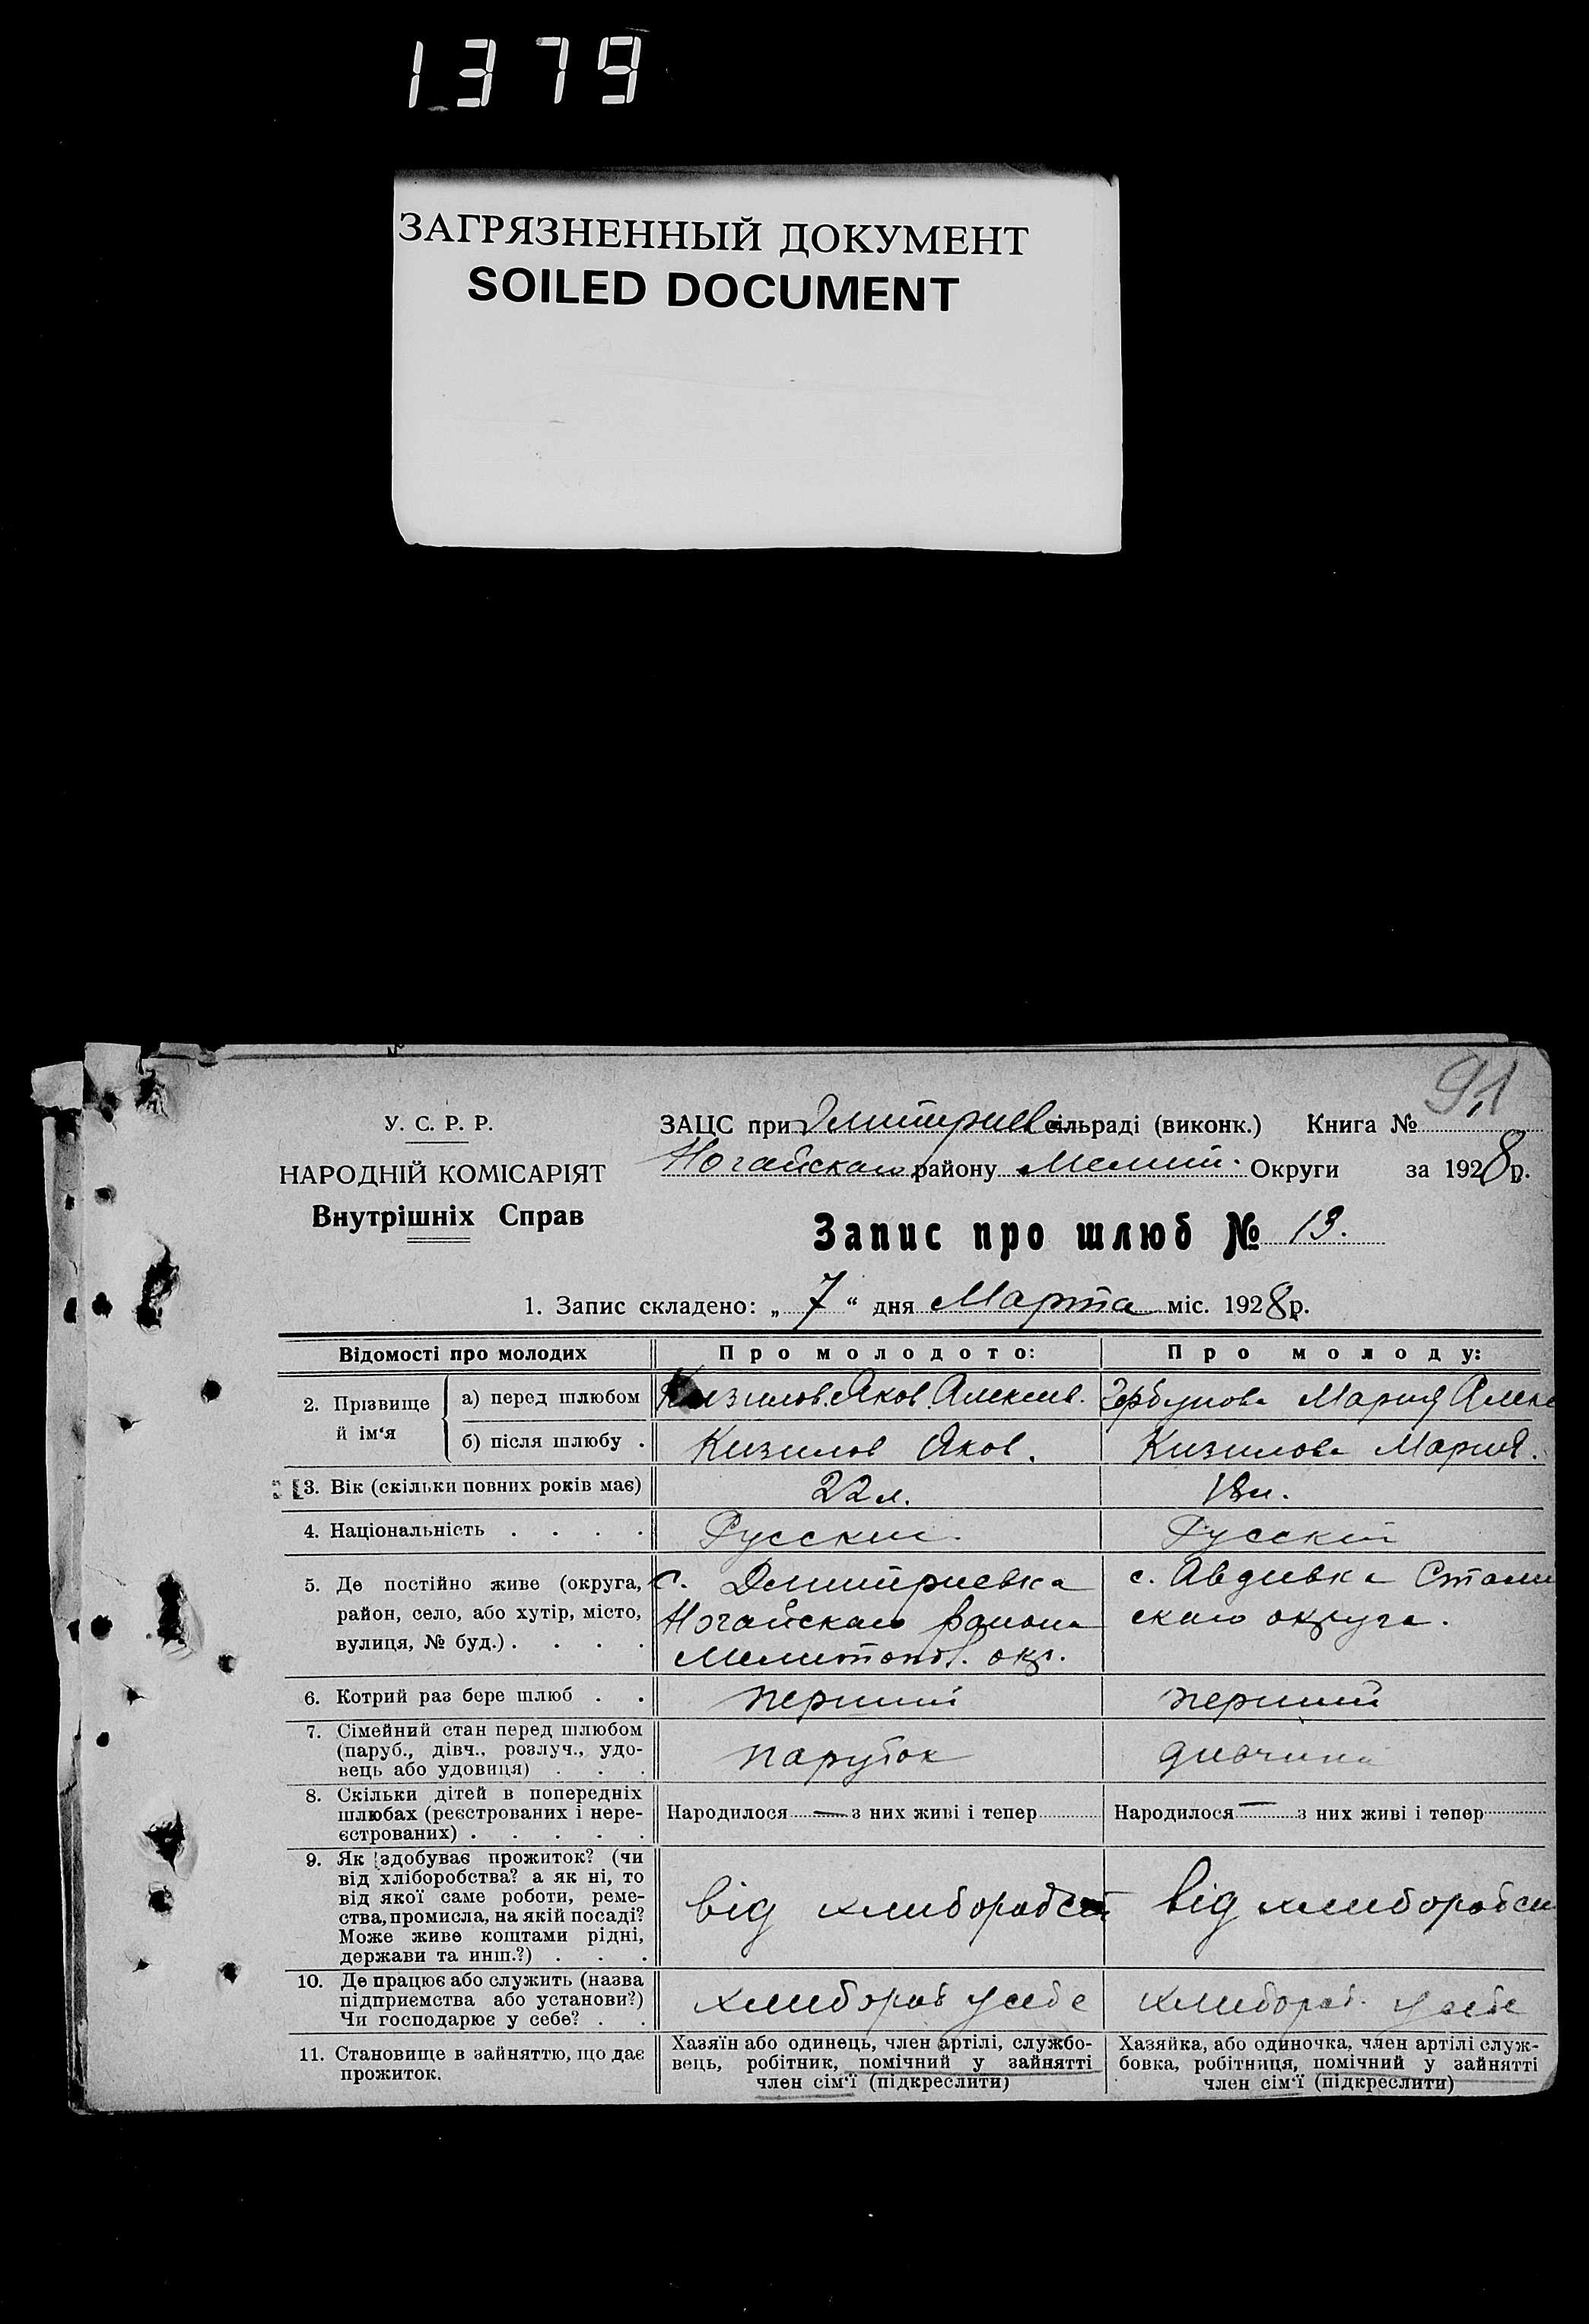 1379
ЗАГРЯЗНЕННЫЙ ДОКУМЕНТ
SOILED DOCUMENT
91
У. С. Р. Р.
НАРОДНІЙ КОМІСАРІЯТ
Внутрішніх Справ
ЗАЦС при Дмитриев сільраді (виконк.) Книга №
Ногайскаго району Мелит. Округи за 1928 р.
Запис про шлюб № 13.
1. Запис складено: „ 7 “ дня Марта міс. 1928 р.
Відомості про молодих Про молодого: Про молоду:
2. Прізвище й ім‘я
а) перед шлюбом Кизилов Яков Алексеев. Мария Алекс
б) після шлюбу . Кизилов Яков. Кизилова Мария.
3. Вік (скільки повних років має) 22 л. 18 л.
4. Національність . . . . Русский Русский
5. Де постійно живе (округа,
район, село, або хутір, місто,
вулиця, № буд.) . . . .
с. Дмитриевка
Ногайскаго района
Мелитопол. окр.
с. Авдиевка Стали
скаго округа.
6. Котрий раз бере шлюб . . перший перший
7. Сімейний стан перед шлюбом
(паруб., дівч., розлуч., удо-
вець або удовиця) . . .
парубок дивчина
8. Скільки дітей в попередніх
шлюбах (реєстрованих і нере-
єстрованих) . . . . .
Народилося — з них живі і тепер
Народилося — з них живі і тепер
9. Як здобуває прожиток? (чи
від хліборобства? а як ні, то
від якої саме роботи, реме-
ства, промисла, на якій посаді?
Може живе коштами рідні,
держави та инш.?) . . .
від
від
10. Де працює або служить (назва
підприемства або установи?)
Чи господарює у себе? . .
хлибороб у себе хлибороб. у себе
11. Становище в зайняттю, що дає
прожиток.
Хазяїн або одинець, член артілі, службо-
вець, робітник, помічний у зайнятті
член сім‘ї (підкреслити)
Хазяйка, або одиночка, член артілі служ-
бовка, робітниця, помічний у зайнятті
член сім‘ї (підкреслити)